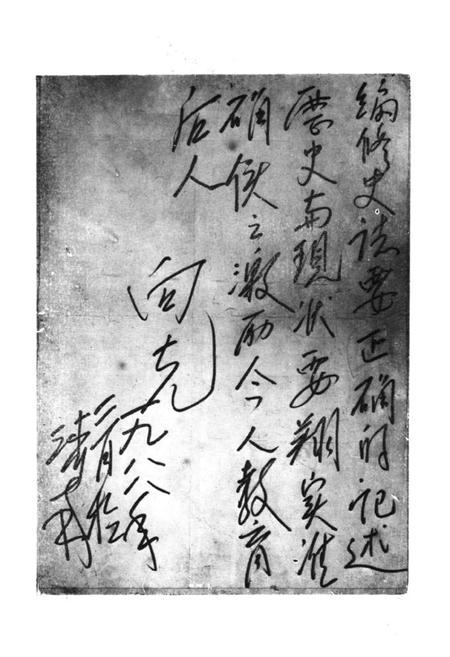 编修史志要正确的记述
历史与现状要翔实准
确使之激励今人教育
后人
向
一九八八年
二月